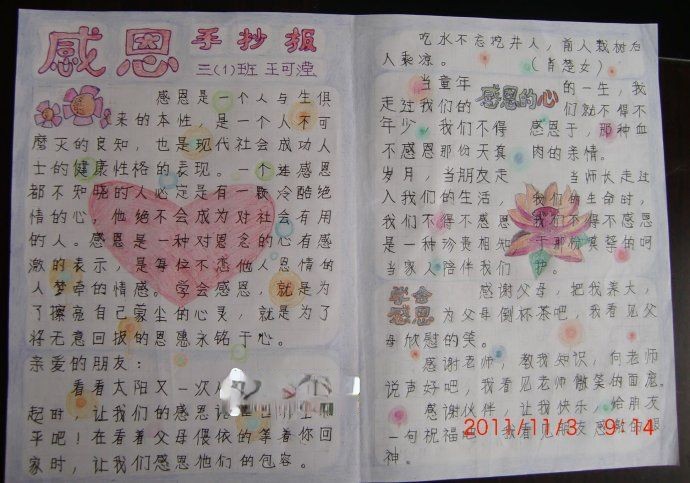 感恩 手抄报
三(1)班 王可滢
感恩是一个人与生俱
来的本性，是一个人不可
磨灭的良知，也是现代社会成功人
士的健康性格的表现。一个连感恩
都不知晓的人必定是有一颗冷酷绝
情的心，他绝不会成为对社会有用
的人。感恩是一种对恩念的心有感
激的表示，是每位不忘他人恩情的
人梦牵的情感。学会感恩，就是为
了擦亮自己蒙尘的心灵，就是为了
将无意回报的恩惠永铭于心。
亲爱的朋友：
看着太阳又一次
起时，让我们的感恩
平吧！在看着父母偎依的等着你回
家时，让我们感恩他们的包容。
吃水不忘挖井人，前人栽树后
人乘凉。（肖楚女）
感恩的心
当童年
走过我们的
年少，我们不得
不感恩那份天真
岁月，当朋友走
入我们的生活，
我们不得不感恩
是一种珍贵相知
当家人陪伴我们
的一生，我
们就不得不
感恩于，那种血
肉的亲情。
当师长走过
我们的生命时，
我们不得不感恩
于那份真挚的呵
护。
学会感恩
感谢父母，把我养大，
为父母倒杯茶吧，我看见父
母欣慰的笑。
感谢老师，教我知识，向老师
说声好吧，我看见老师微笑的面庞。
感谢伙伴，让我快乐，给朋友
一句祝福吧，我看见朋友感激的眼
神。
2011/11/3 9:14